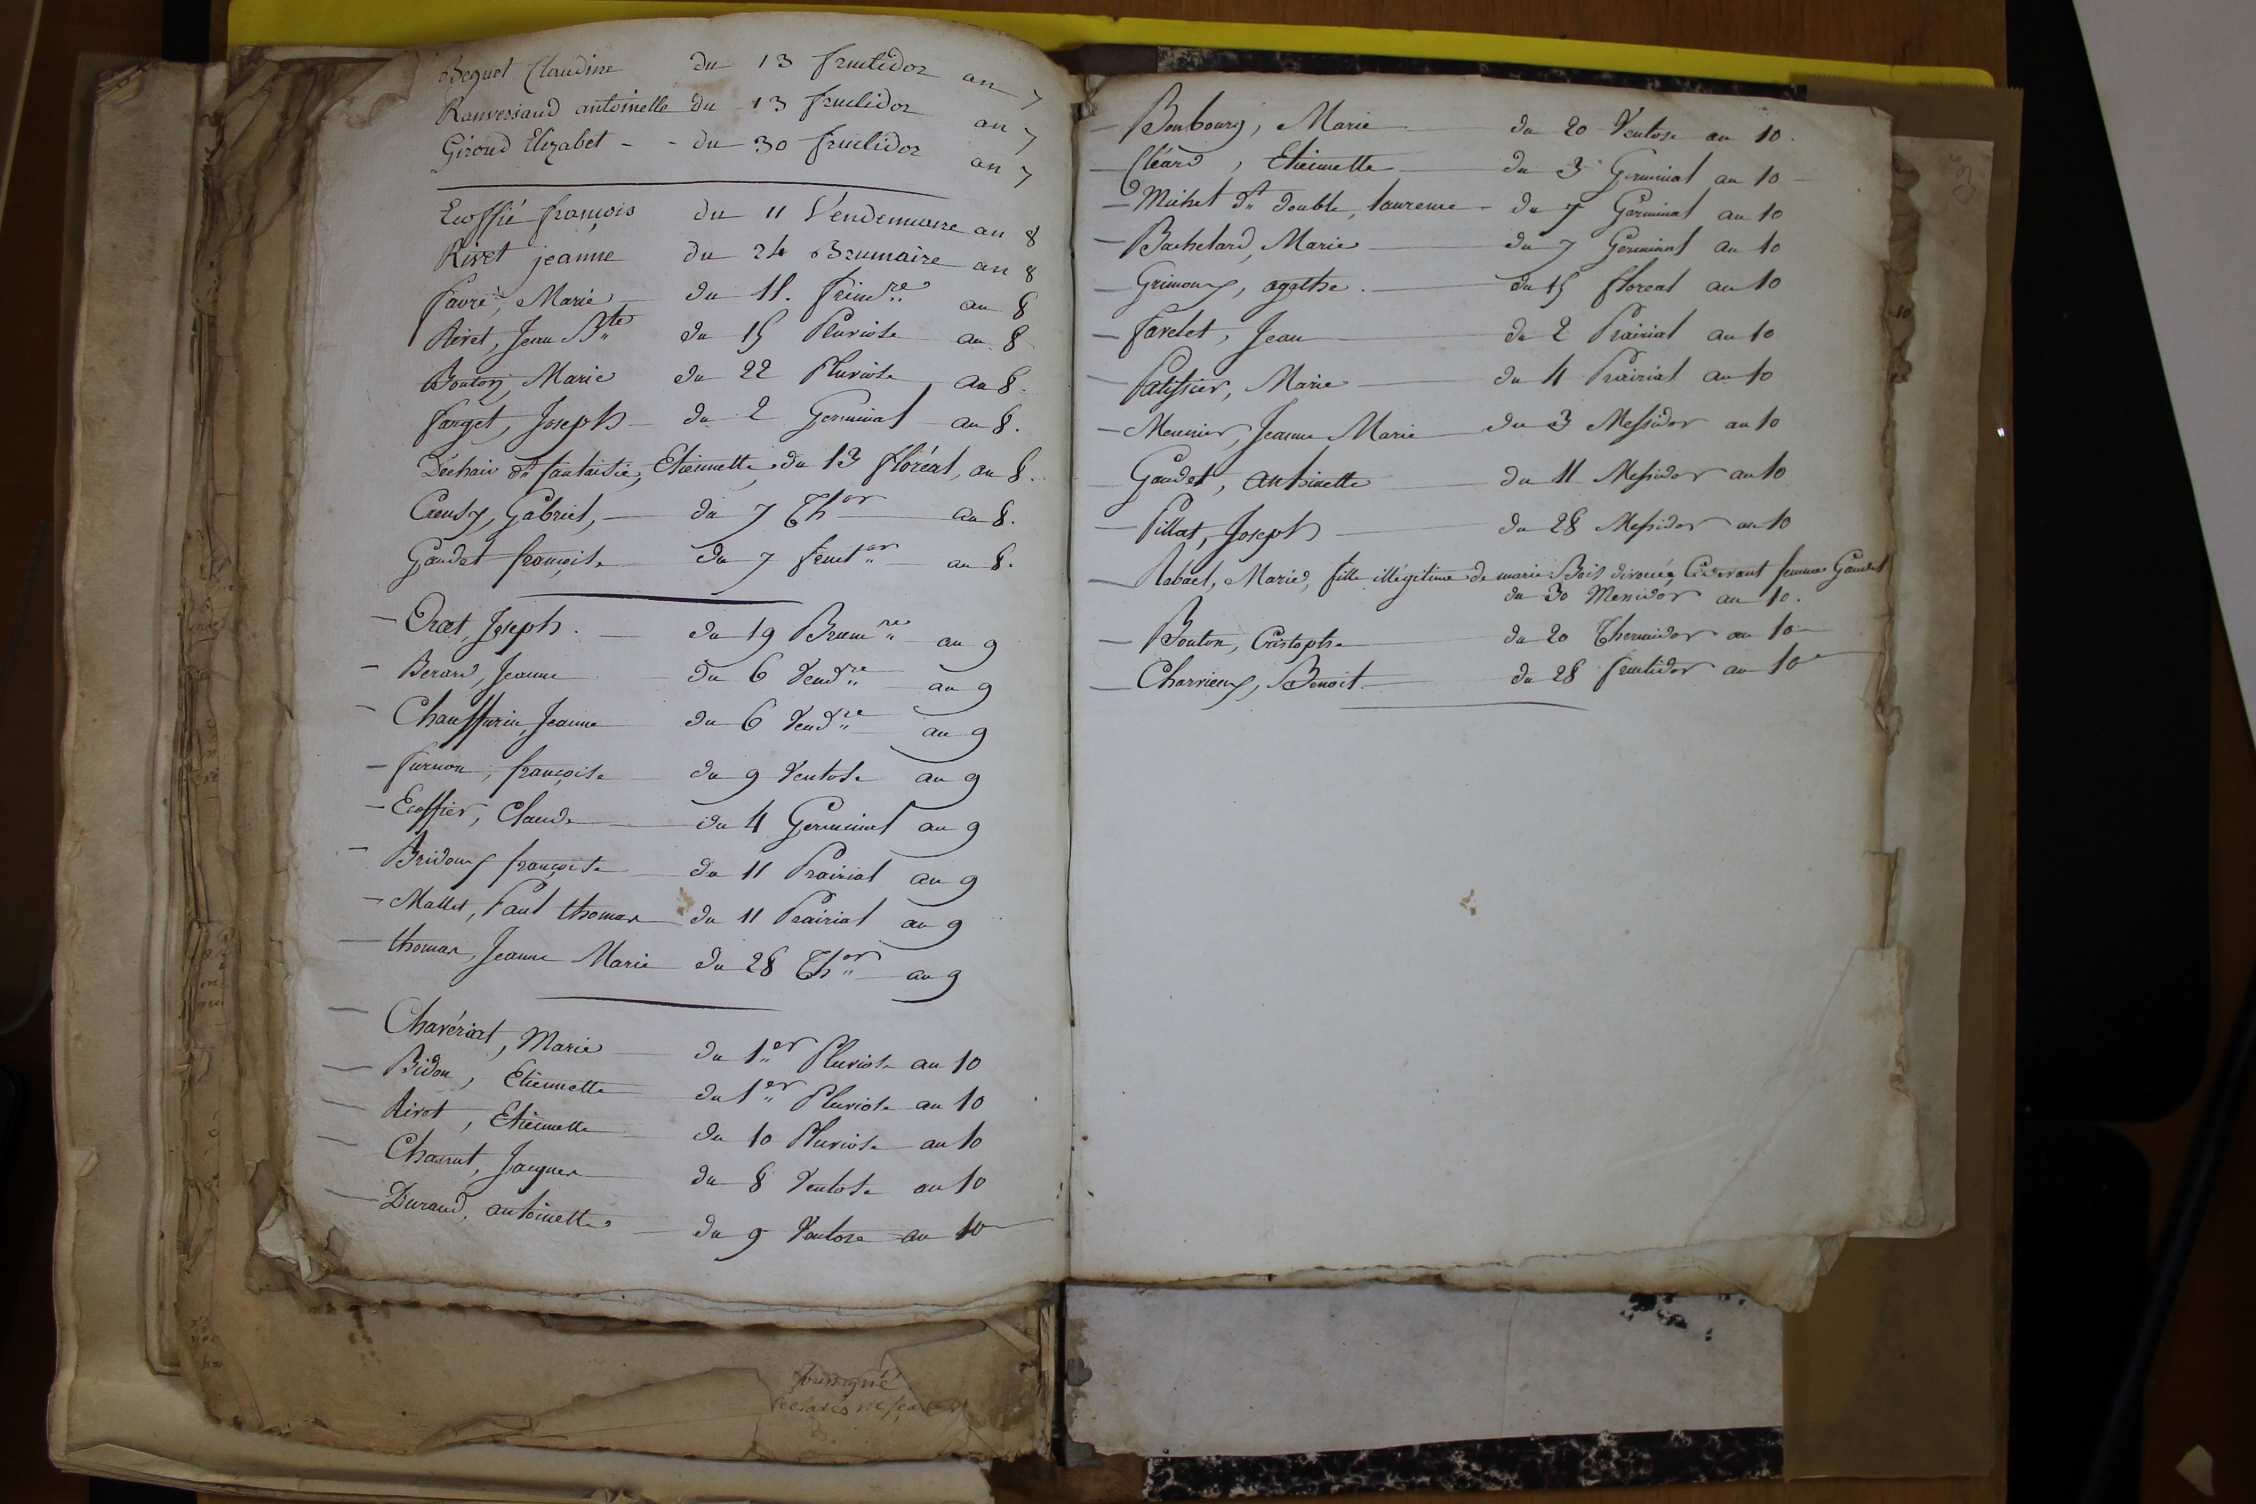 Bequet Claudine du 13 fructidor an 7
Ranversaud antoinette du 13 fructidor an 7
Giroud Elizabet - - du 30 fructidor an 7
Ecoffié françois du 11 Vendemiaire an 8
Rivet jeanne du 24 Brumaire an 8
favre, Marie du 11. frim.re an 8
Rivet, Jean B.te du 15 Pluviose an 8
Bouton, Marie du 22 Pluviose an 8.
farget, Joseph du 2 Germinal an 8.
Déchaix dt fantaisie, Etiennette, du 13 floréal, an 8.
Creusy, Gabriel, du 7 Th.or an 8.
Gaudet françoise du 7 fruct.or an 8.
— Crat, Joseph. du 19 Brum.re an 9
— Berard, Jeanne du 6 Vend.re an 9
— Chauffurin, Jeanne du 6 Vend.re an 9
— furnon, françoise du 9 Ventose an 9
— Ecoffier, Claude du 4 Germinal an 9
— Bridoux françoise du 11 Prairial an 9
— Mallet, Paul thomas du 11 Prairial an 9
— thomas, Jeanne Marie du 28 Th.or an 9
— Chavériat, Marie du 1.er Pluviose an 10
— Bidon, Etiennette du 1.er Pluviose an 10
— Rivot, Etiennette du 10 Pluviose an 10
— Charrut, Jacques du 8 Ventose an 10
— Durand, antoinette du 9 Ventose an 10
— Bonbourg, Marie du 20 Ventose an 10.
— Cléard, Etiennette du 3 Germinal an 10
— Michel dt double, laurence du 7 Germinal an 10
— Bachelard, Marie du 7 Germinal an 10
— Grimoux, agathe. du 15 floreal an 10
— favelet, Jean du 2 Prairial an 10
— Patissier, Marie du 4 Prairial an 10
— Meunier, Jeanne Marie du 3 Messidor an 10
— Gaudet, antoinette du 11 Messidor an 10
— Pillat, Joseph du 28 Messidor an 10
— Rabael, Marie, fille illégitime de marie Bois divorcée Cidevant femme Gaudet
du 30 Messidor an 10.
— Bouton, Cristophe du 20 Thermidor an 10
— Charrieux, Benoit du 28 fructidor an 10